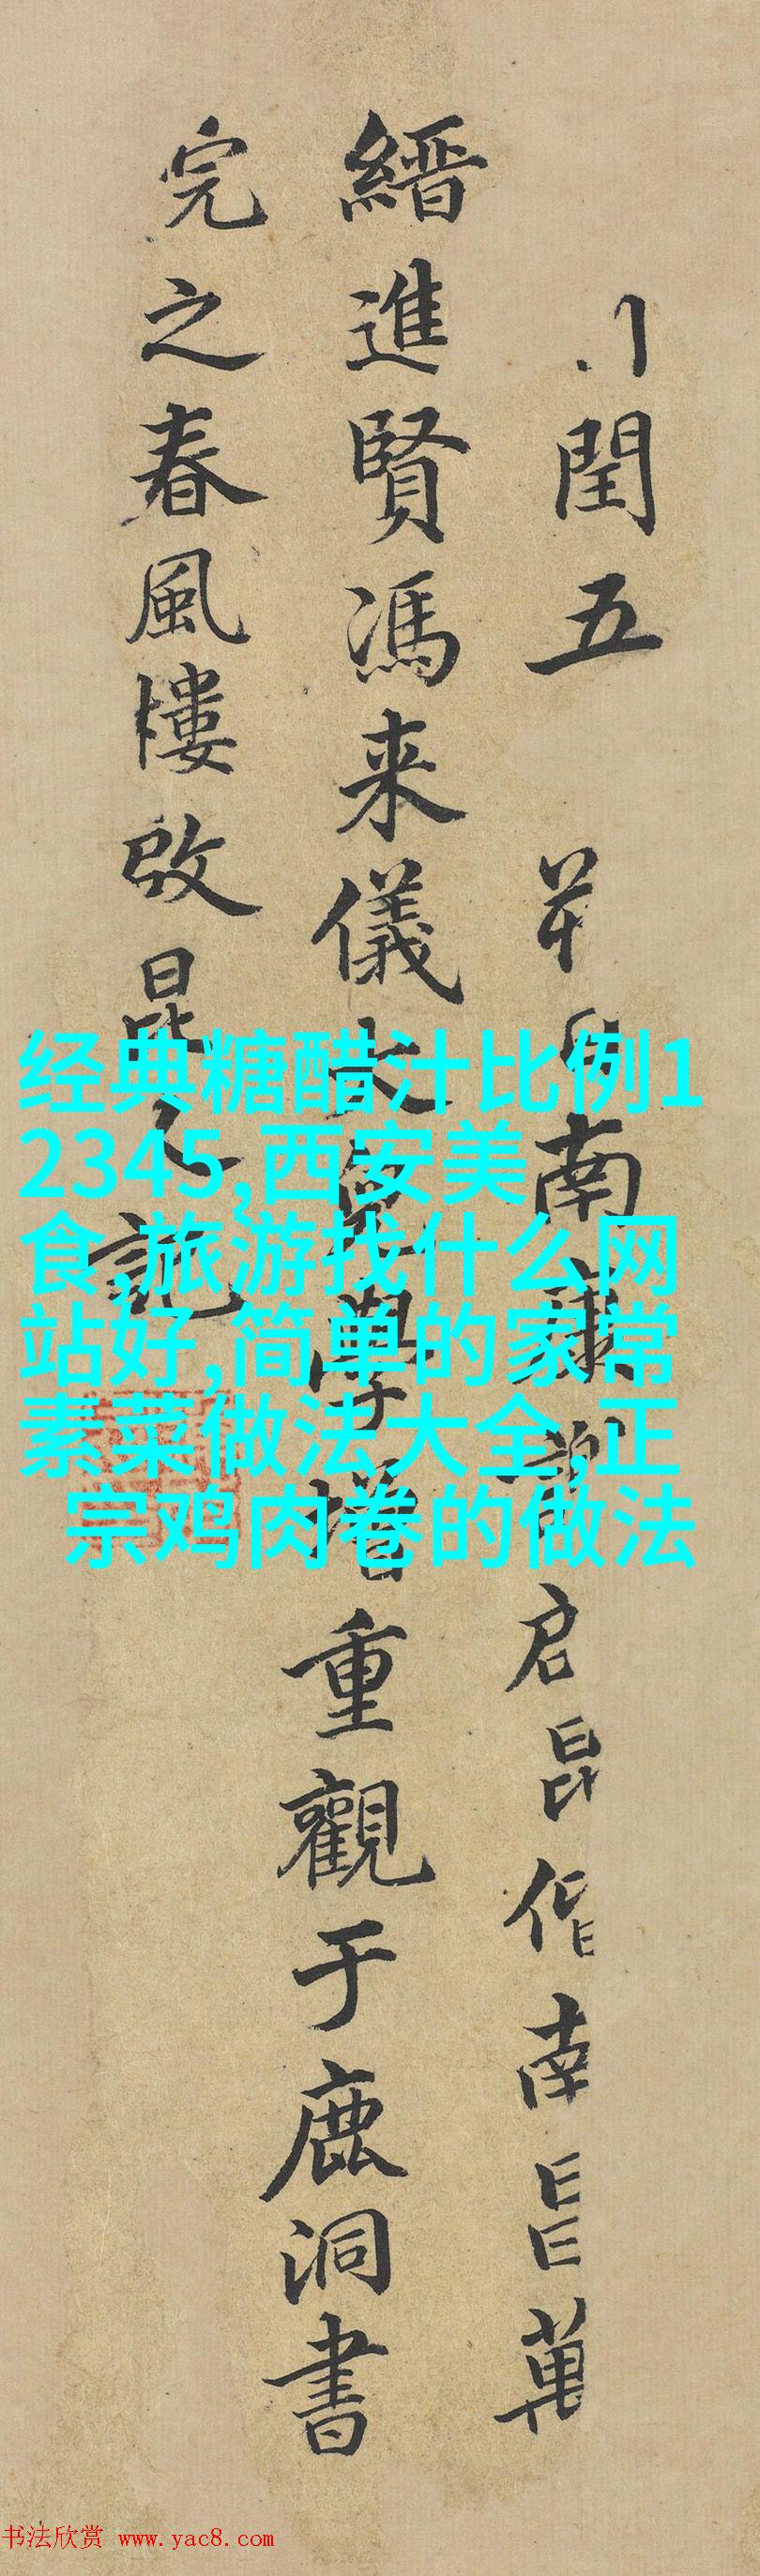 閏五
南
启昆偕南昌萬
縉進賢馮来儀
學增重觀于鹿洞書
完之春風樓啟昆又記
经典糖醋汁比例1
2345,西安美
食,旅游找什么网
站好,简单的家常
素菜做法大全,正
宗鸡肉卷的做法
书法欣赏 www.yac8.com